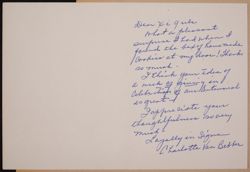 Dear Zi Gubs
What a pleasant
surprise I had when I
found the box of homemade
cookies at my door! Thanks
so much.
I think your idea of
a week of giving in
celebration of our National
is great!
I appreciate your
thoughtfulness so very
much.
Loyally in Sigma
Charlotte Van Bebber